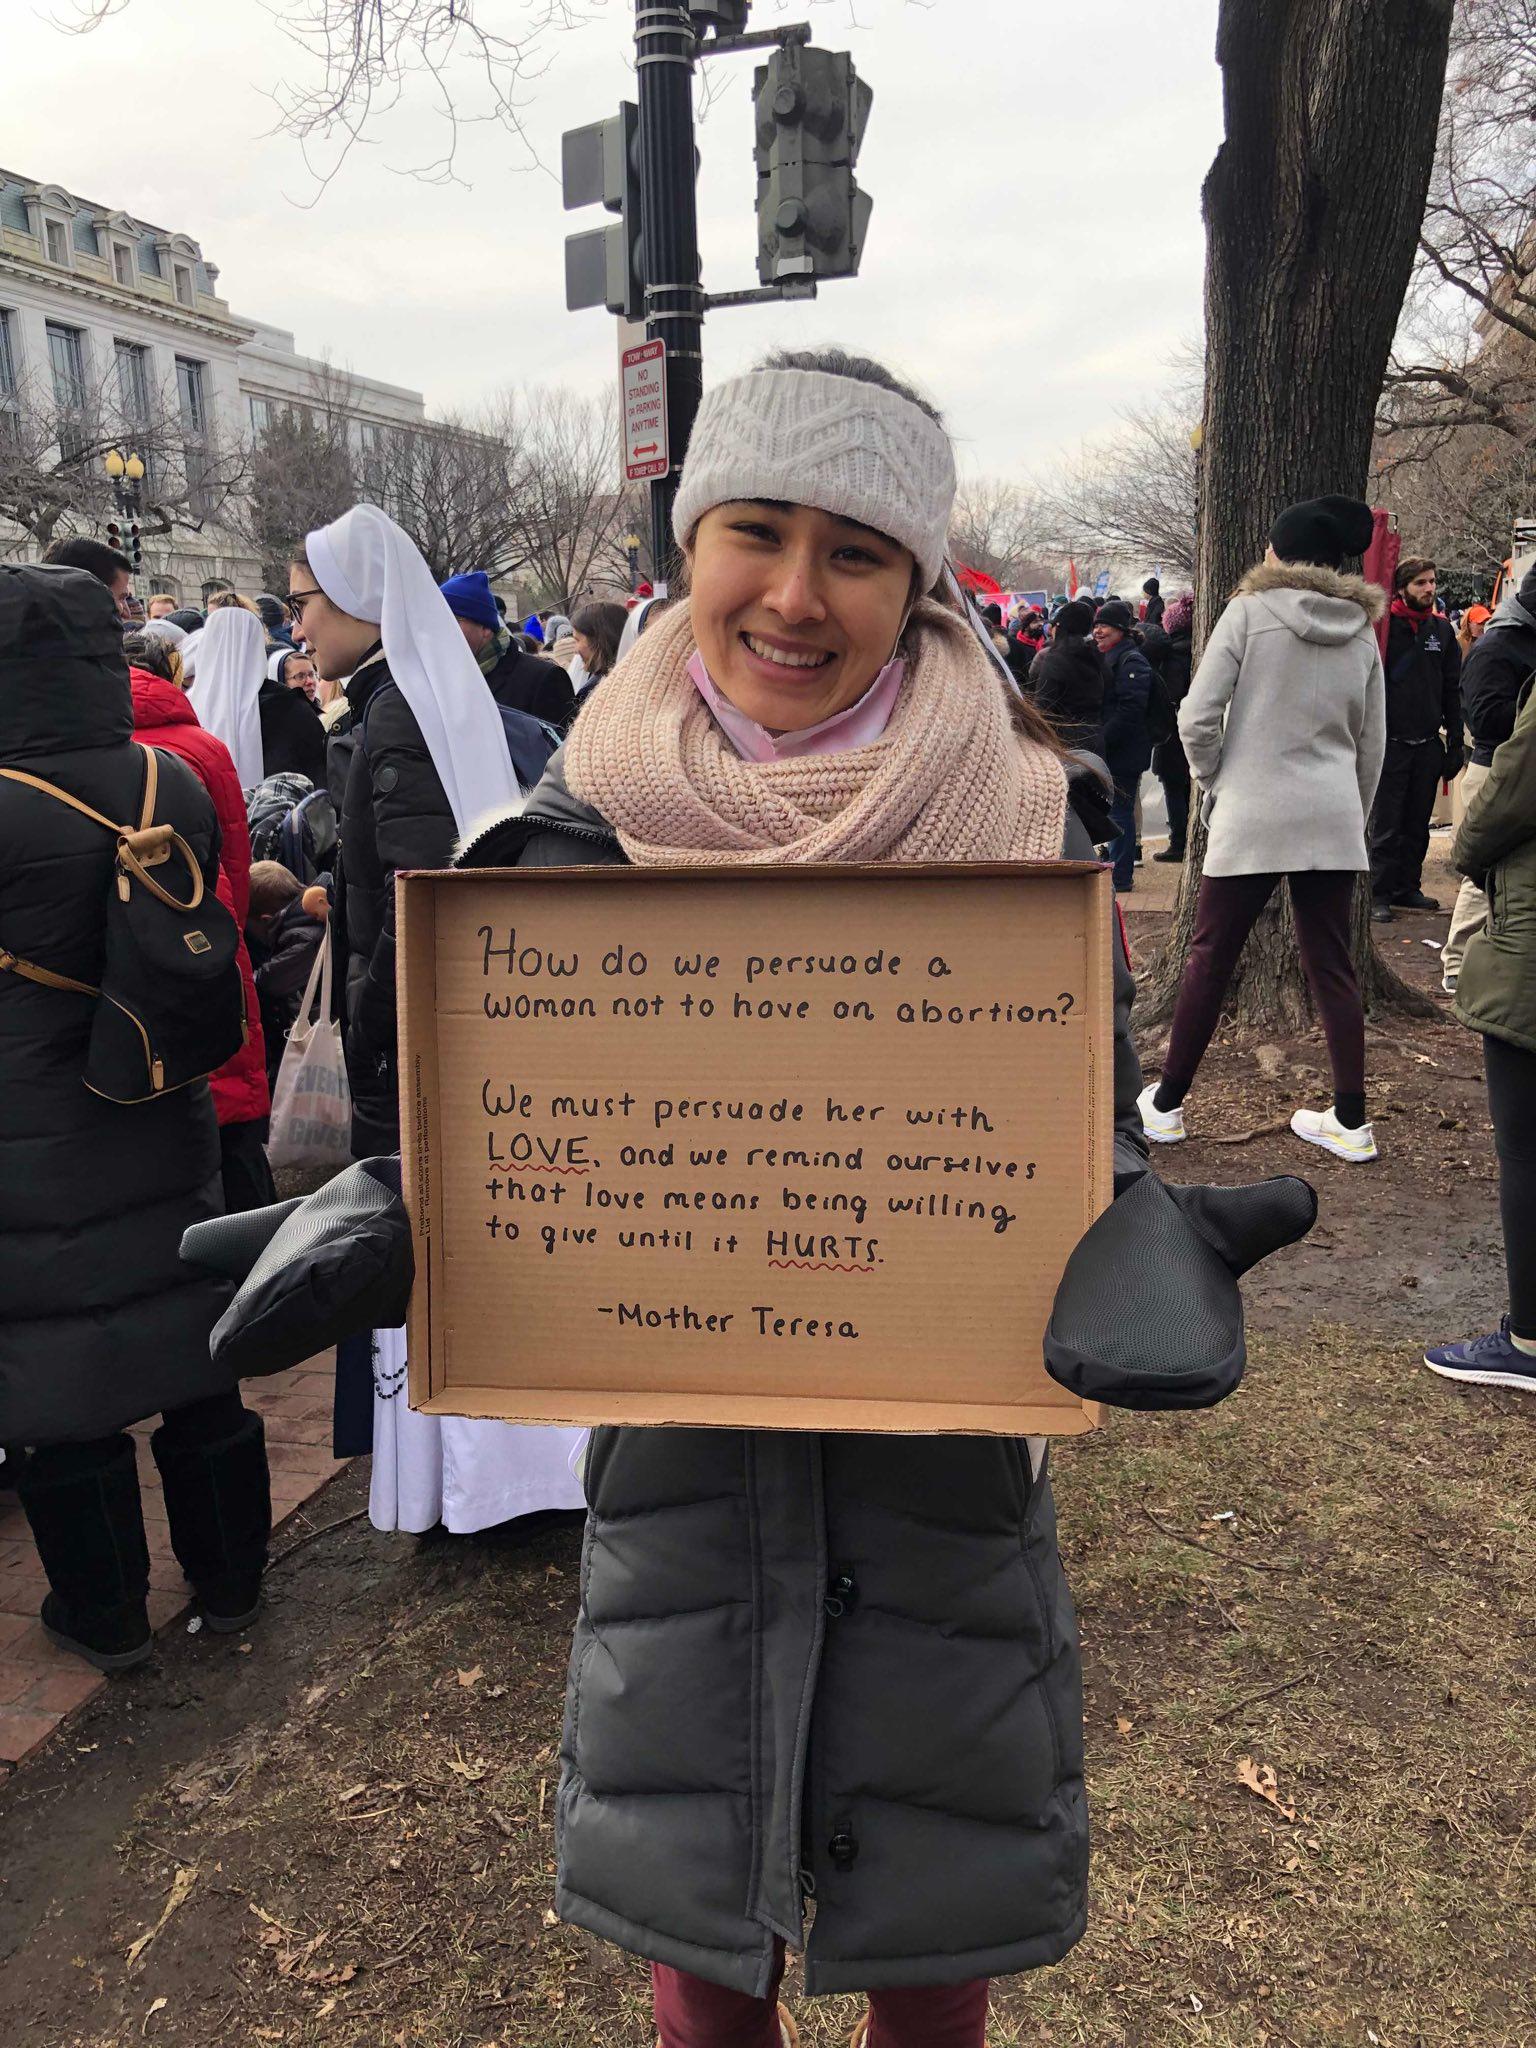 TOW-AWAY
NO
STANDING
OR PARKING
ANYTIME
How do we persuade a
woman not to have an abortion?
We must persuade her with
LOVE, and we remind ourselves
that love means being willing
to give until it HURTS.
-Mother Teresa